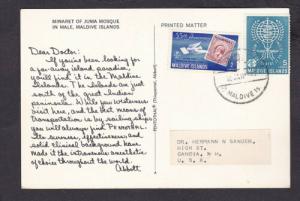 MINARET OF JUMA MOSQUE
IN MALE, MALDIVE ISLANDS
PRINTED MATTER
Dear Doctor:
If you've been looking for
a far-away island paradise,
you'll find it in the Maldive
Islands. The Islands are just
south of the great Indian
peninsula. While you westerners
visit here, and the best means of
transportation is by sailing ships,
you will always find PENTOTHAL.
Its success, effectiveness and
solid clinical background have
made it the intravenous anesthetic
of choice throughout the world.
Abbott
PENTOTHAL® (Thiopental, Abbott)
MALDIVE ISLANDS
MALDIVE ISLANDS
5
MALDIVE IS.
DR. HERMANN N SANDER,
HIGH ST.
CANDIA, N H.
U. S. A.